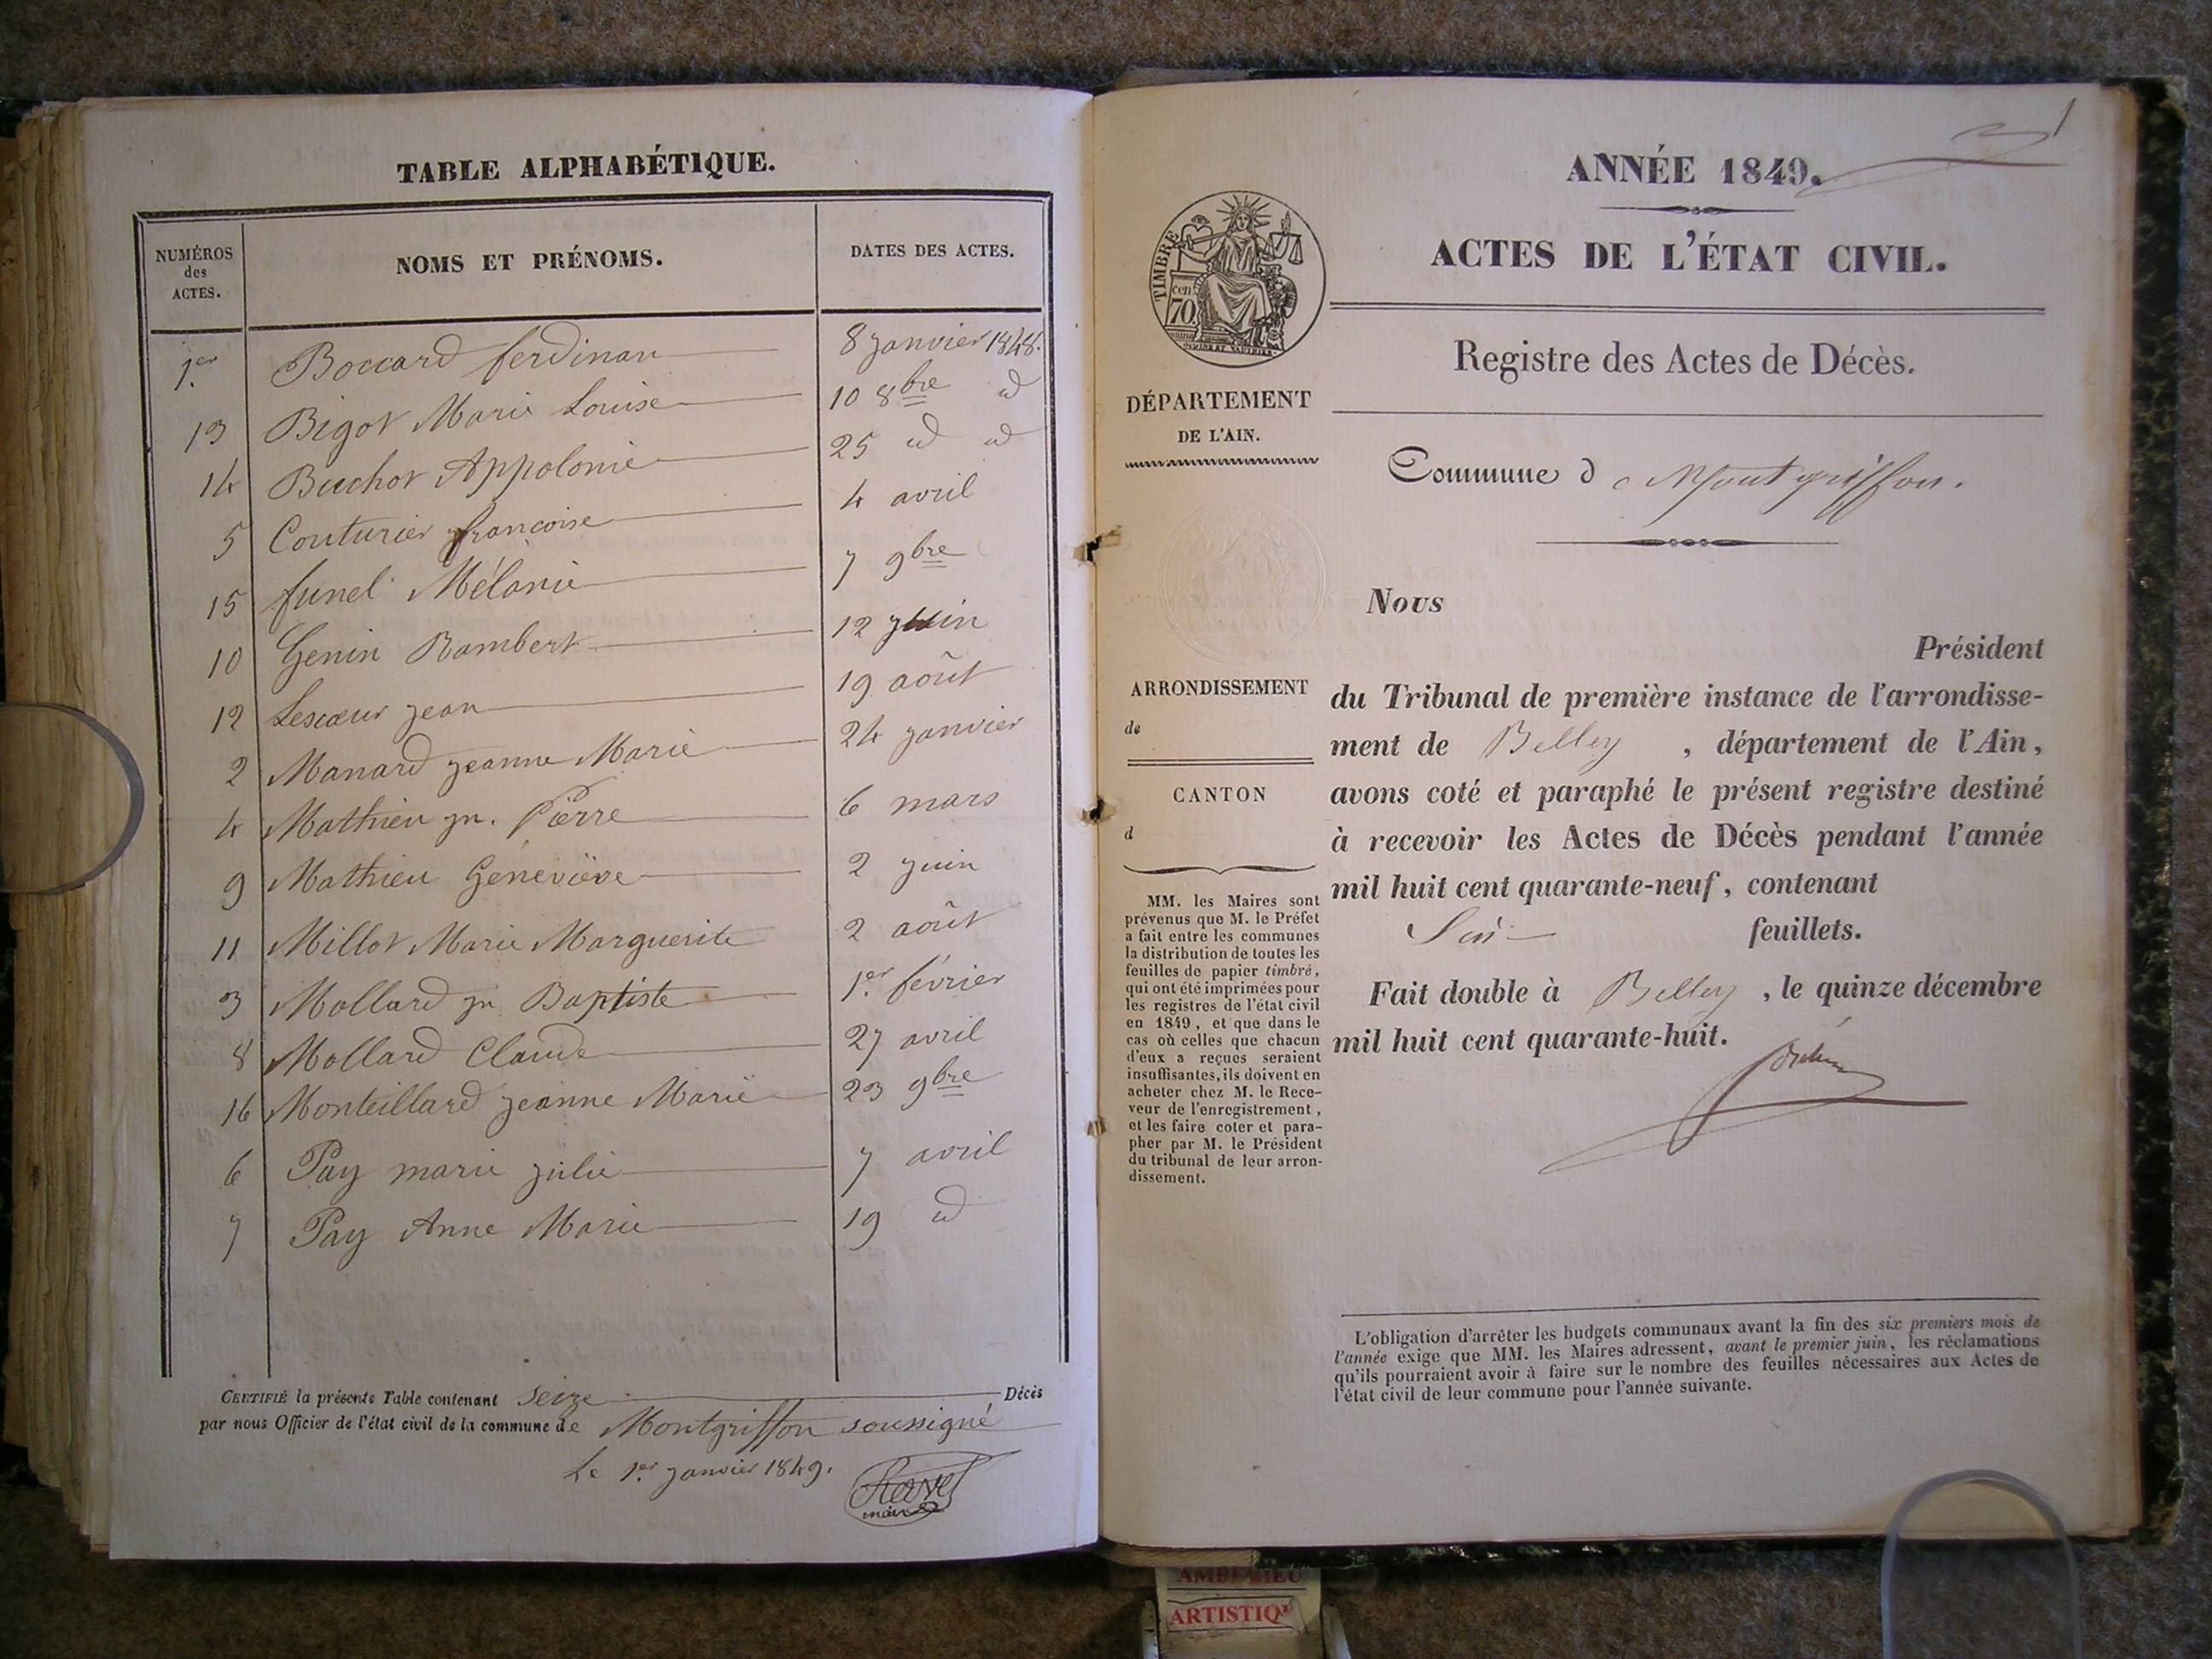 TABLE ALPHABÉTIQUE.
NUMÉROS des ACTES. NOMS ET PRÉNOMS. DATES DES ACTES.
1.er Boccard ferdinan 8 janvier 1848.
13 Bigot Marie Louise 10 8bre id
14 Buchot Appolonie 25 id id
5 Couturier françoise 4 avril
15 funel Mélanie 7 9bre
10 Genin Rambert 12 juin
12 Lescœur jean 19 août
2 Manard jeanne Marie 24 janvier
4 Mathieu jn. Pierre 6 mars
9 Mathieu Géneviève 2 juin
11 Millot Marie Marguerite 2 août
3 Mollard jn Baptiste 1.er février
8 Mollard Claude 27 avril
16 Monteillard jeanne Marie 23 9bre
6 Pay marie julie 7 avril
7 Pay Anne Marie 19 id
CERTIFIÉ la présente Table contenant seize Décès
par nous Officier de l'état civil de la commune de Montgriffon soussigné
Le 1.er janvier 1849.
maire
1
ANNÉE 1849.
ACTES DE L'ÉTAT CIVIL.
TIMBRE
cen
70
Registre des Actes de Décès.
DÉPARTEMENT
DE L'AIN.
Commune d Montgriffon.
Nous
Président
du Tribunal de première instance de l'arrondisse-
ment de Belley , département de l'Ain,
avons coté et paraphé le présent registre destiné
à recevoir les Actes de Décès pendant l'année
mil huit cent quarante-neuf, contenant
Six feuillets.
Fait double à Belley , le quinze décembre
mil huit cent quarante-huit.
ARRONDISSEMENT
de
CANTON
d
MM. les Maires sont
prévenus que M. le Préfet
a fait entre les communes
la distribution de toutes les
feuilles de papier timbré,
qui ont été imprimées pour
les registres de l'état civil
en 1849, et que dans le
cas où celles que chacun
d'eux a reçues seraient
insuffisantes, ils doivent en
acheter chez M. le Rece-
veur de l'enregistrement,
et les faire coter et para-
pher par M. le Président
du tribunal de leur arron-
dissement.
L'obligation d'arrêter les budgets communaux avant la fin des six premiers mois de
l'année exige que MM. les Maires adressent, avant le premier juin, les réclamations
qu'ils pourraient avoir à faire sur le nombre des feuilles nécessaires aux Actes de
l'état civil de leur commune pour l'année suivante.
AMBERIEU
ARTISTIQU